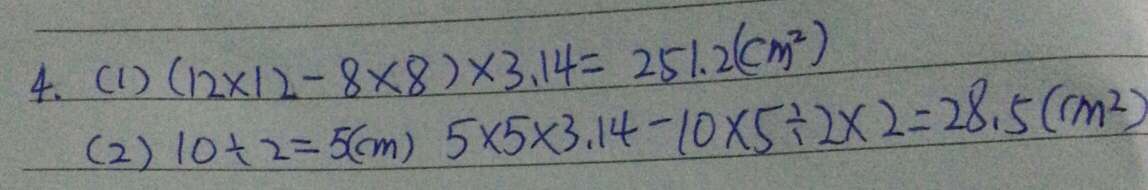 4. (1) (12×12-8×8)×3.14= 251.2(cm²)
(2) 10÷2=5(cm) 5×5×3.14-10×5÷2×2=28.5(cm²)